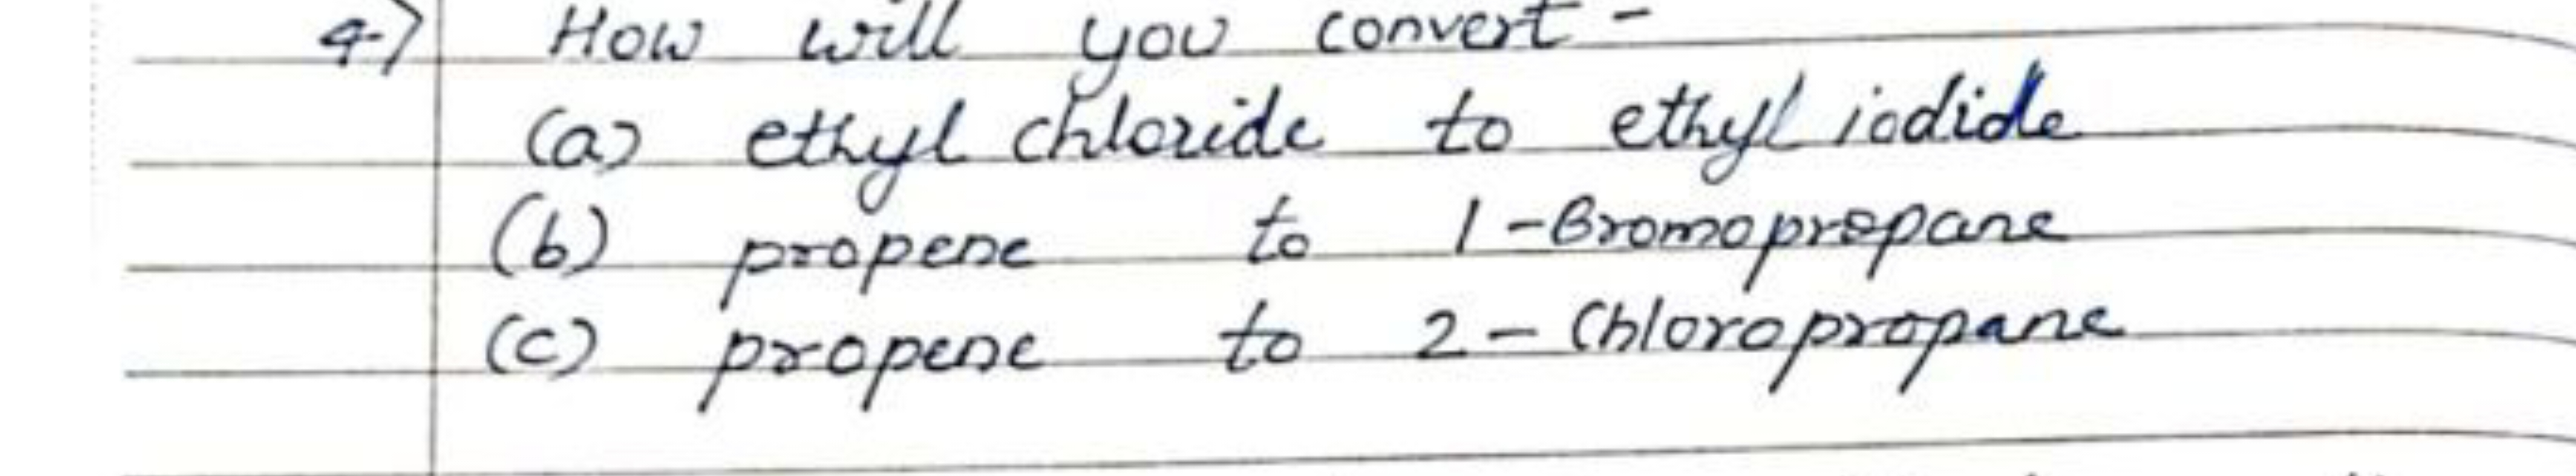 4) How will you convert -
(a) ethyl chloride to ethyl iodide
(b) propene to 1-Bromopropane
(c) propene to 2-Chloropropane